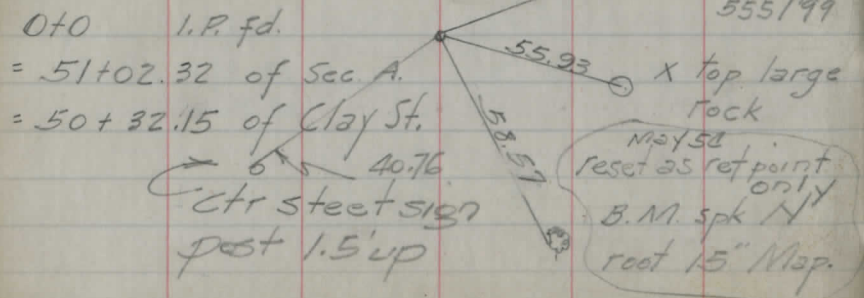 555/99
0+0 I.P. fd.
= 51+02.32 of Sec. A.
= 50+32.15 of Clay St.
40.76
Ctr steet sign
post 1.5' up
55.93
58.57
X top large
rock
May 52
reset as ref point
only
B.M. spk N'ly
root 15" Map.